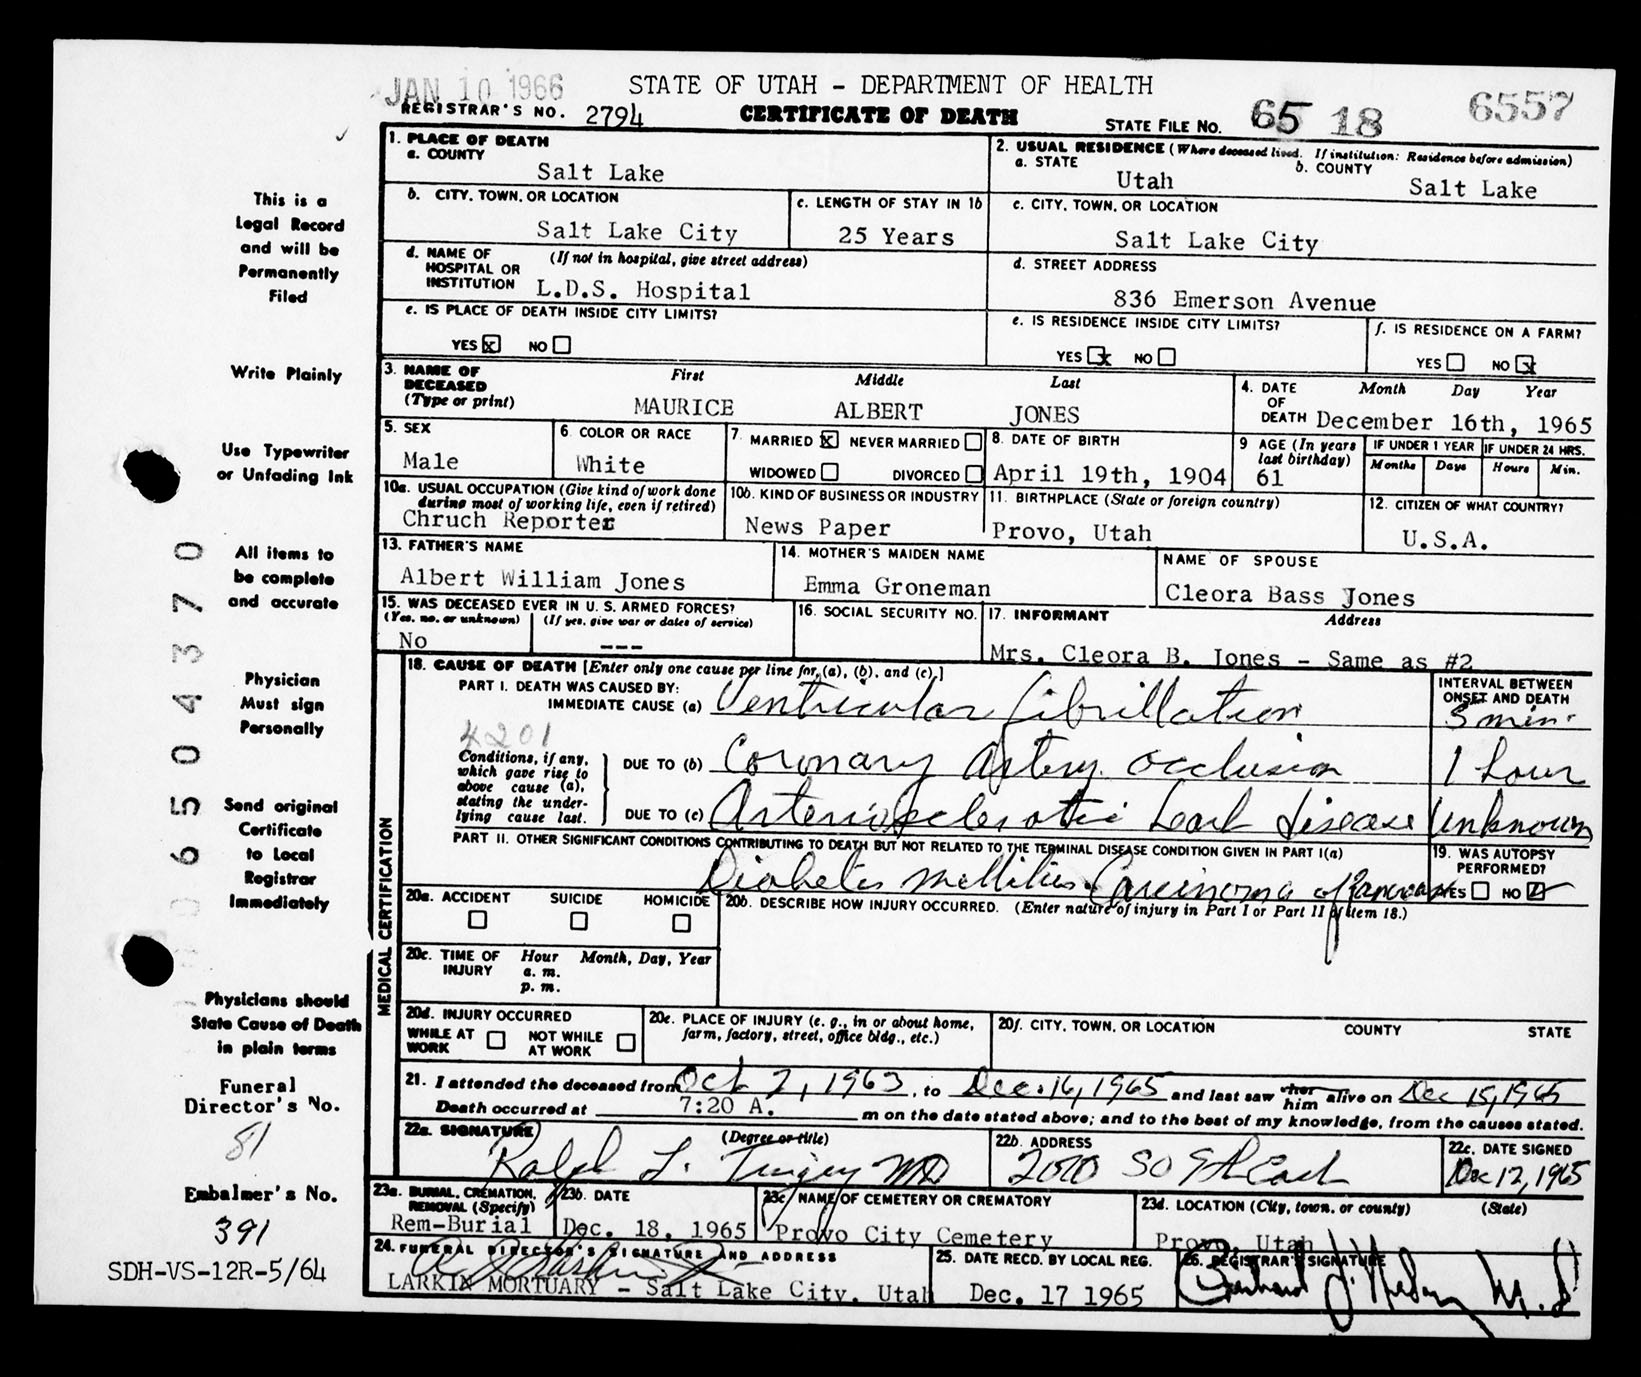 JAN 10 1966
STATE OF UTAH - DEPARTMENT OF HEALTH
REGISTRAR'S NO. 2794
CERTIFICATE OF DEATH
STATE FILE NO. 65 18 6557
1. PLACE OF DEATH
a. COUNTY
Salt Lake
2. USUAL RESIDENCE (Where deceased lived. If institution: Residence before admission)
a. STATE
Utah
b. COUNTY
Salt Lake
b. CITY, TOWN, OR LOCATION
Salt Lake City
c. LENGTH OF STAY IN 1b
25 Years
c. CITY, TOWN, OR LOCATION
Salt Lake City
d. NAME OF HOSPITAL OR INSTITUTION
(If not in hospital, give street address)
L.D.S. Hospital
d. STREET ADDRESS
836 Emerson Avenue
e. IS PLACE OF DEATH INSIDE CITY LIMITS?
YES x NO
e. IS RESIDENCE INSIDE CITY LIMITS?
YES x NO
f. IS RESIDENCE ON A FARM?
YES NO x
3. NAME OF DECEASED (Type or print)
First Middle Last
MAURICE ALBERT JONES
4. DATE OF DEATH
Month Day Year
December 16th, 1965
5. SEX
Male
6. COLOR OR RACE
White
7. MARRIED x NEVER MARRIED
WIDOWED DIVORCED
8. DATE OF BIRTH
April 19th, 1904
9 AGE (In years last birthday)
61
IF UNDER 1 YEAR
Months Days
IF UNDER 24 HRS.
Hours Min.
10a. USUAL OCCUPATION (Give kind of work done during most of working life, even if retired)
Chruch Reporter
10b. KIND OF BUSINESS OR INDUSTRY
News Paper
11. BIRTHPLACE (State or foreign country)
Provo, Utah
12. CITIZEN OF WHAT COUNTRY?
U.S.A.
13. FATHER'S NAME
Albert William Jones
14. MOTHER'S MAIDEN NAME
Emma Groneman
NAME OF SPOUSE
Cleora Bass Jones
15. WAS DECEASED EVER IN U. S. ARMED FORCES?
(Yes, no, or unknown) (If yes, give war or dates of service)
No ---
16. SOCIAL SECURITY NO.
17. INFORMANT Address
Mrs. Cleora B. Jones - Same as #2
MEDICAL CERTIFICATION
18. CAUSE OF DEATH [Enter only one cause per line for (a), (b), and (c).]
INTERVAL BETWEEN ONSET AND DEATH
PART I. DEATH WAS CAUSED BY:
IMMEDIATE CAUSE (a) Ventricular fibrillation
min.
4201
Conditions, if any, which gave rise to above cause (a), stating the underlying cause last.
DUE TO (b) Coronary Artery occlusion 1 hour
DUE TO (c) Arteriosclerotic heart disease Unknown
PART II. OTHER SIGNIFICANT CONDITIONS CONTRIBUTING TO DEATH BUT NOT RELATED TO THE TERMINAL DISEASE CONDITION GIVEN IN PART I(a)
Diabetes mellitus. Carcinoma of Pancreas
19. WAS AUTOPSY PERFORMED?
YES NO
20a. ACCIDENT SUICIDE HOMICIDE
20b. DESCRIBE HOW INJURY OCCURRED. (Enter nature of injury in Part I or Part II of item 18.)
20c. TIME OF INJURY
Hour Month, Day, Year
a. m.
p. m.
20d. INJURY OCCURRED
WHILE AT WORK NOT WHILE AT WORK
20e. PLACE OF INJURY (e. g., in or about home, farm, factory, street, office bldg., etc.)
20f. CITY, TOWN, OR LOCATION COUNTY STATE
21. I attended the deceased from Oct 2, 1963, to Dec. 16, 1965 and last saw her him alive on Dec 15, 1965
Death occurred at 7:20 A. m on the date stated above; and to the best of my knowledge, from the causes stated.
22a. SIGNATURE (Degree or title)
Ralph L. Tingey MD
22b. ADDRESS
So 9th East
22c. DATE SIGNED
Dec 17, 1965
23a. BURIAL, CREMATION, REMOVAL (Specify)
Rem-Burial
23b. DATE
Dec. 18, 1965
23c. NAME OF CEMETERY OR CREMATORY
Provo City Cemetery
23d. LOCATION (City, town, or county) (State)
Provo, Utah
24. FUNERAL DIRECTOR'S SIGNATURE AND ADDRESS
LARKIN MORTUARY - Salt Lake City, Utah
25. DATE RECD. BY LOCAL REG.
Dec. 17 1965
26. REGISTRAR'S SIGNATURE
M.D
This is a
Legal Record
and will be
Permanently
Filed
Write Plainly
Use Typewriter
or Unfading Ink
All items to
be complete
and accurate
Physician
Must sign
Personally
Send original
Certificate
to Local
Registrar
Immediately
Physicians should
State Cause of Death
in plain terms
Funeral
Director's No.
81
Embalmer's No.
391
SDH-VS-12R-5/64
06504370